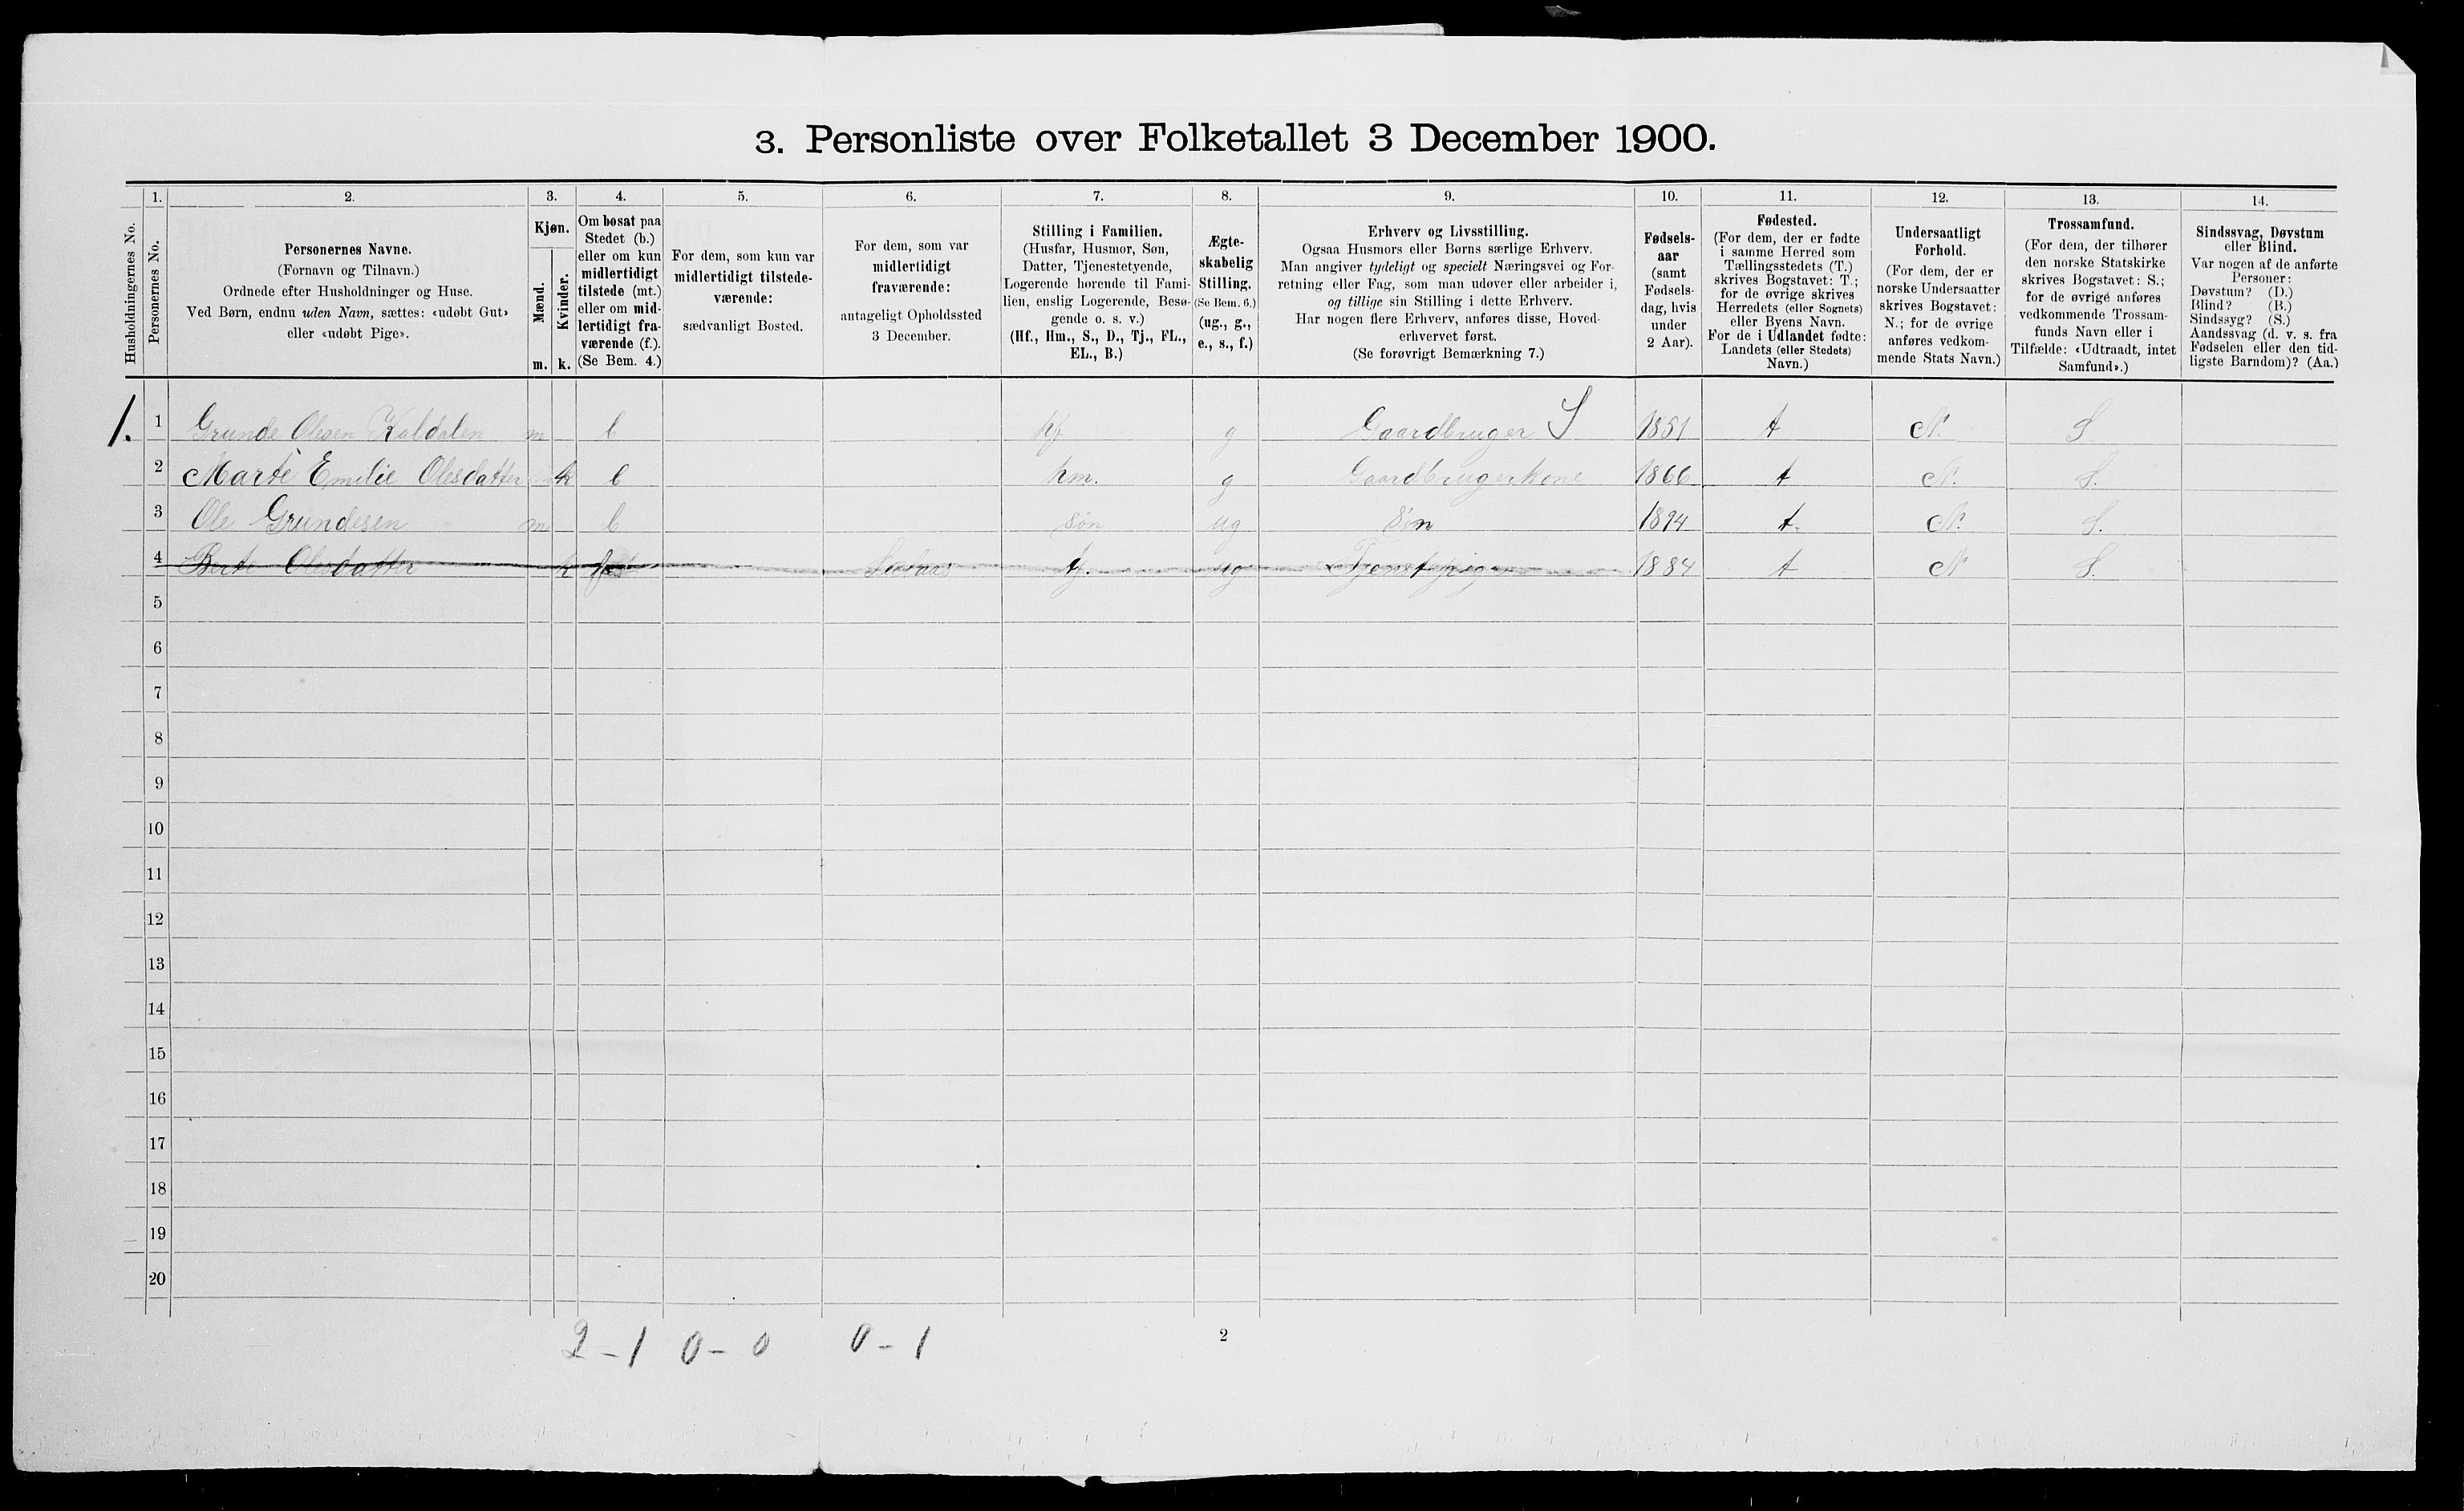 3. Personliste over Folketallet 3 December 1900.
Husholdningernes No.
1.
Personernes No.
2.
Personernes Navne.
(Fornavn og Tilnavn.)
Ordnede efter Husholdninger og Huse.
Ved Børn, endnu uden Navn, sættes: «udøbt Gut»
eller «udøbt Pige».
3.
Kjøn.
Mænd.
m.
Kvinder.
k.
4.
Om bosat paa
Stedet (b.)
eller om kun
midlertidigt
tilstede (mt.)
eller om mid-
lertidigt fra-
værende (f.).
(Se Bem. 4.)
5.
For dem, som kun var
midlertidigt tilstede-
værende:
sædvanligt Bosted.
6.
For dem, som var
midlertidigt
fraværende:
antageligt Opholdssted
3 December.
7.
Stilling i Familien.
(Husfar, Husmor, Søn,
Datter, Tjenestetyende,
Logerende hørende til Fami-
lien, enslig Logerende, Besø-
gende o. s. v.)
(Hf., Hm., S., D., Tj., FL.,
EL., B.)
8.
Ægte-
skabelig
Stilling.
(Se Bem. 6.)
(ug., g.,
e., s., f.)
9.
Erhverv og Livsstilling.
Ogsaa Husmors eller Børns særlige Erhverv.
Man angiver tydeligt og specielt Næringsvei og For-
retning eller Fag, som man udøver eller arbeider i,
og tillige sin Stilling i dette Erhverv.
Har nogen flere Erhverv, anføres disse, Hoved-
erhvervet først.
(Se forøvrigt Bemærkning 7.)
10.
Fødsels-
aar
(samt
Fødsels-
dag, hvis
under
2 Aar).
11.
Fødested.
(For dem, der er fødte
i samme Herred som
Tællingsstedets (T.)
skrives Bogstavet: T.;
for de øvrige skrives
Herredets (eller Sognets)
eller Byens Navn.
For de i Udlandet fødte:
Landets (eller Stedets)
Navn.)
12.
Undersaatligt
Forhold.
(For dem, der er
norske Undersaatter
skrives Bogstavet:
N.; for de øvrige
anføres vedkom-
mende Stats Navn.)
13.
Trossamfund.
(For dem, der tilhører
den norske Statskirke
skrives Bogstavet: S.;
for de øvrige anføres
vedkommende Trossam-
funds Navn eller i
Tilfælde: «Udtraadt, intet
Samfund».)
14.
Sindssvag, Døvstum
eller Blind.
Var nogen af de anførte
Personer:
Døvstum? (D.)
Blind? (B.)
Sindssyg? (S.)
Aandssvag (d. v. s. fra
Fødselen eller den tid-
ligste Barndom)? (Aa.)
1. 1 Grunde Olesen Kaldalen m b hf g Gaardbruger S 1851 t N. S.
2 Marte Emilie Olesdatter k b hm. g Gaardbrugerkone 1866 t N. S.
3 Ole Grundesen m b Søn ug Søn 1894 t. N. S.
4 Berte Olesdatter k tj. ug Tjenestpige 1884 t N S.
5
6
7
8
9
10
11
12
13
14
15
16
17
18
19
20
2-1 0-0 0-1
2